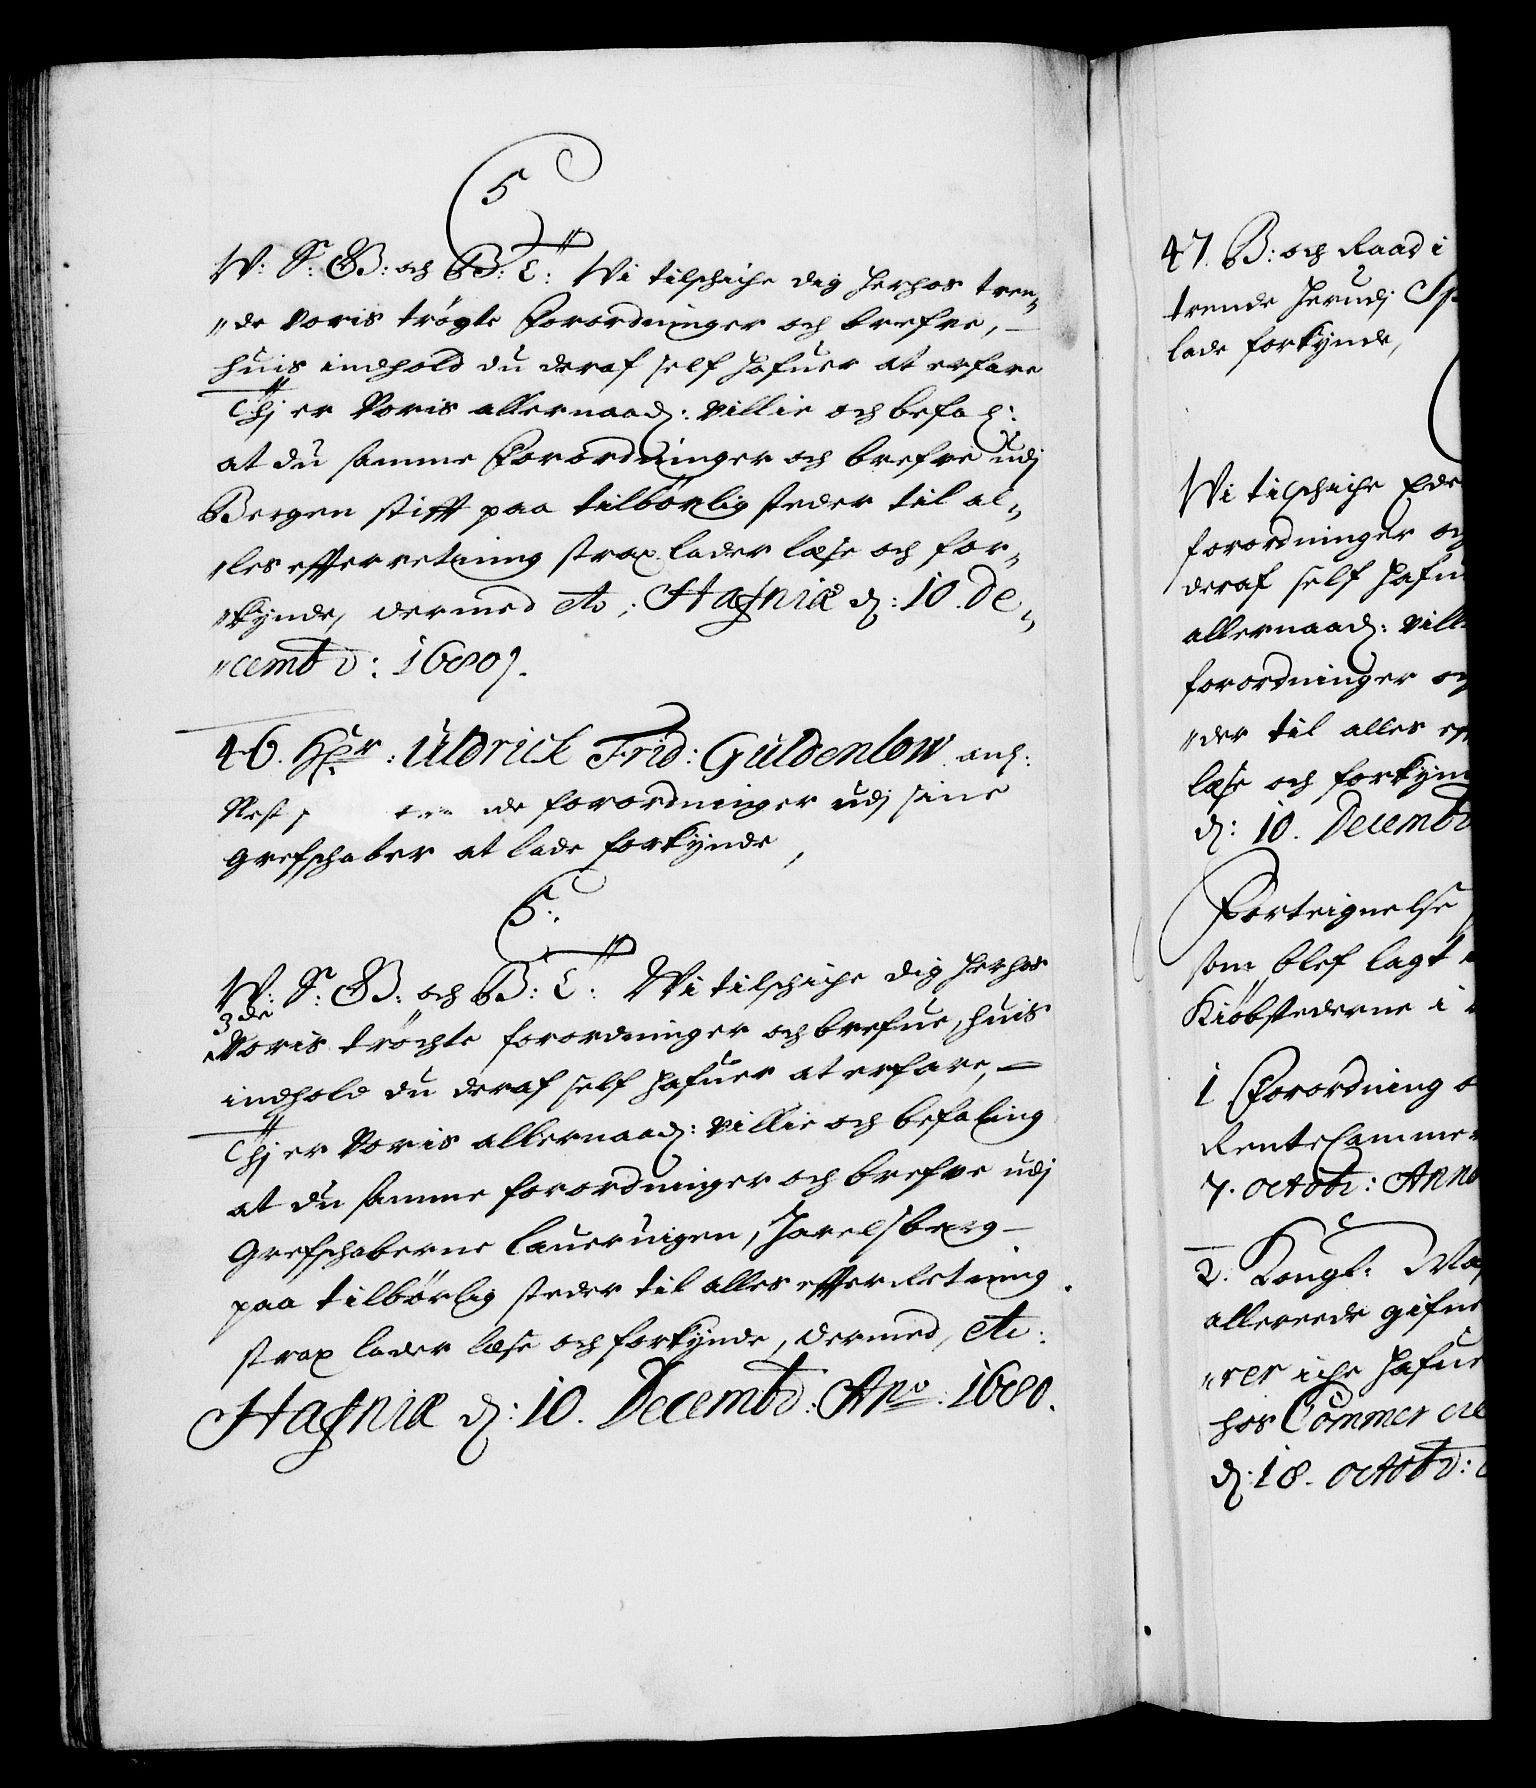 5
W: S: G: B: och B: T: Wi tilschiche dig herhos tren„
„de Voris trögte Forordninger och brefve, —
huis indhold du deraf self hafuer at erfare
Thj er Voris allernaad: villie och befal:
at du samme Forordninger och brefve udj
Bergen stifft paa tilbörlig steder til al„
„les effterretning strax lader læse och for„
„kynde, dermed etc; Hafniæ d: 10. De„
„cembr: 1680.
46. Hr: Uldrick Frid: Guldenlow. anl:
de forordninger udj sine
Grefschaber at lade forkynde,
C:
W: S: G: B: och B: T: Wi tilschiche dig herhos
3de
Voris tröchte forordninger och brefue, huis
indhold du deraf self hafuer at erfare, —
Thj er Voris allernaad: villie och befaling
at du samme forordninger och brefve udj
Grefschaberne Lauervigen, Jarelsberg —
paa tilbörlig steder til alles effterretning
strax lader læse och forkynde, dermed, etc:
Hafniæ d: 10. Decembr: Ano: 1680.
47. B: och Raad i
trende herudj
lade forkynde,
Wi tilschiche Eder
forordninger og
deraf self hafu
allernaad: vill
forordninger og
„der til alles eff
læse och forkyn
d: 10. Decembr
Forteignelse
som blef lagt
Kiöbstederne i
1 Forordning o
RenteCammer
7. octobr: Anno
2. Kongl: May
allereede gifne
„rer iche hafue
hos Commerce
d: 18. octobr: